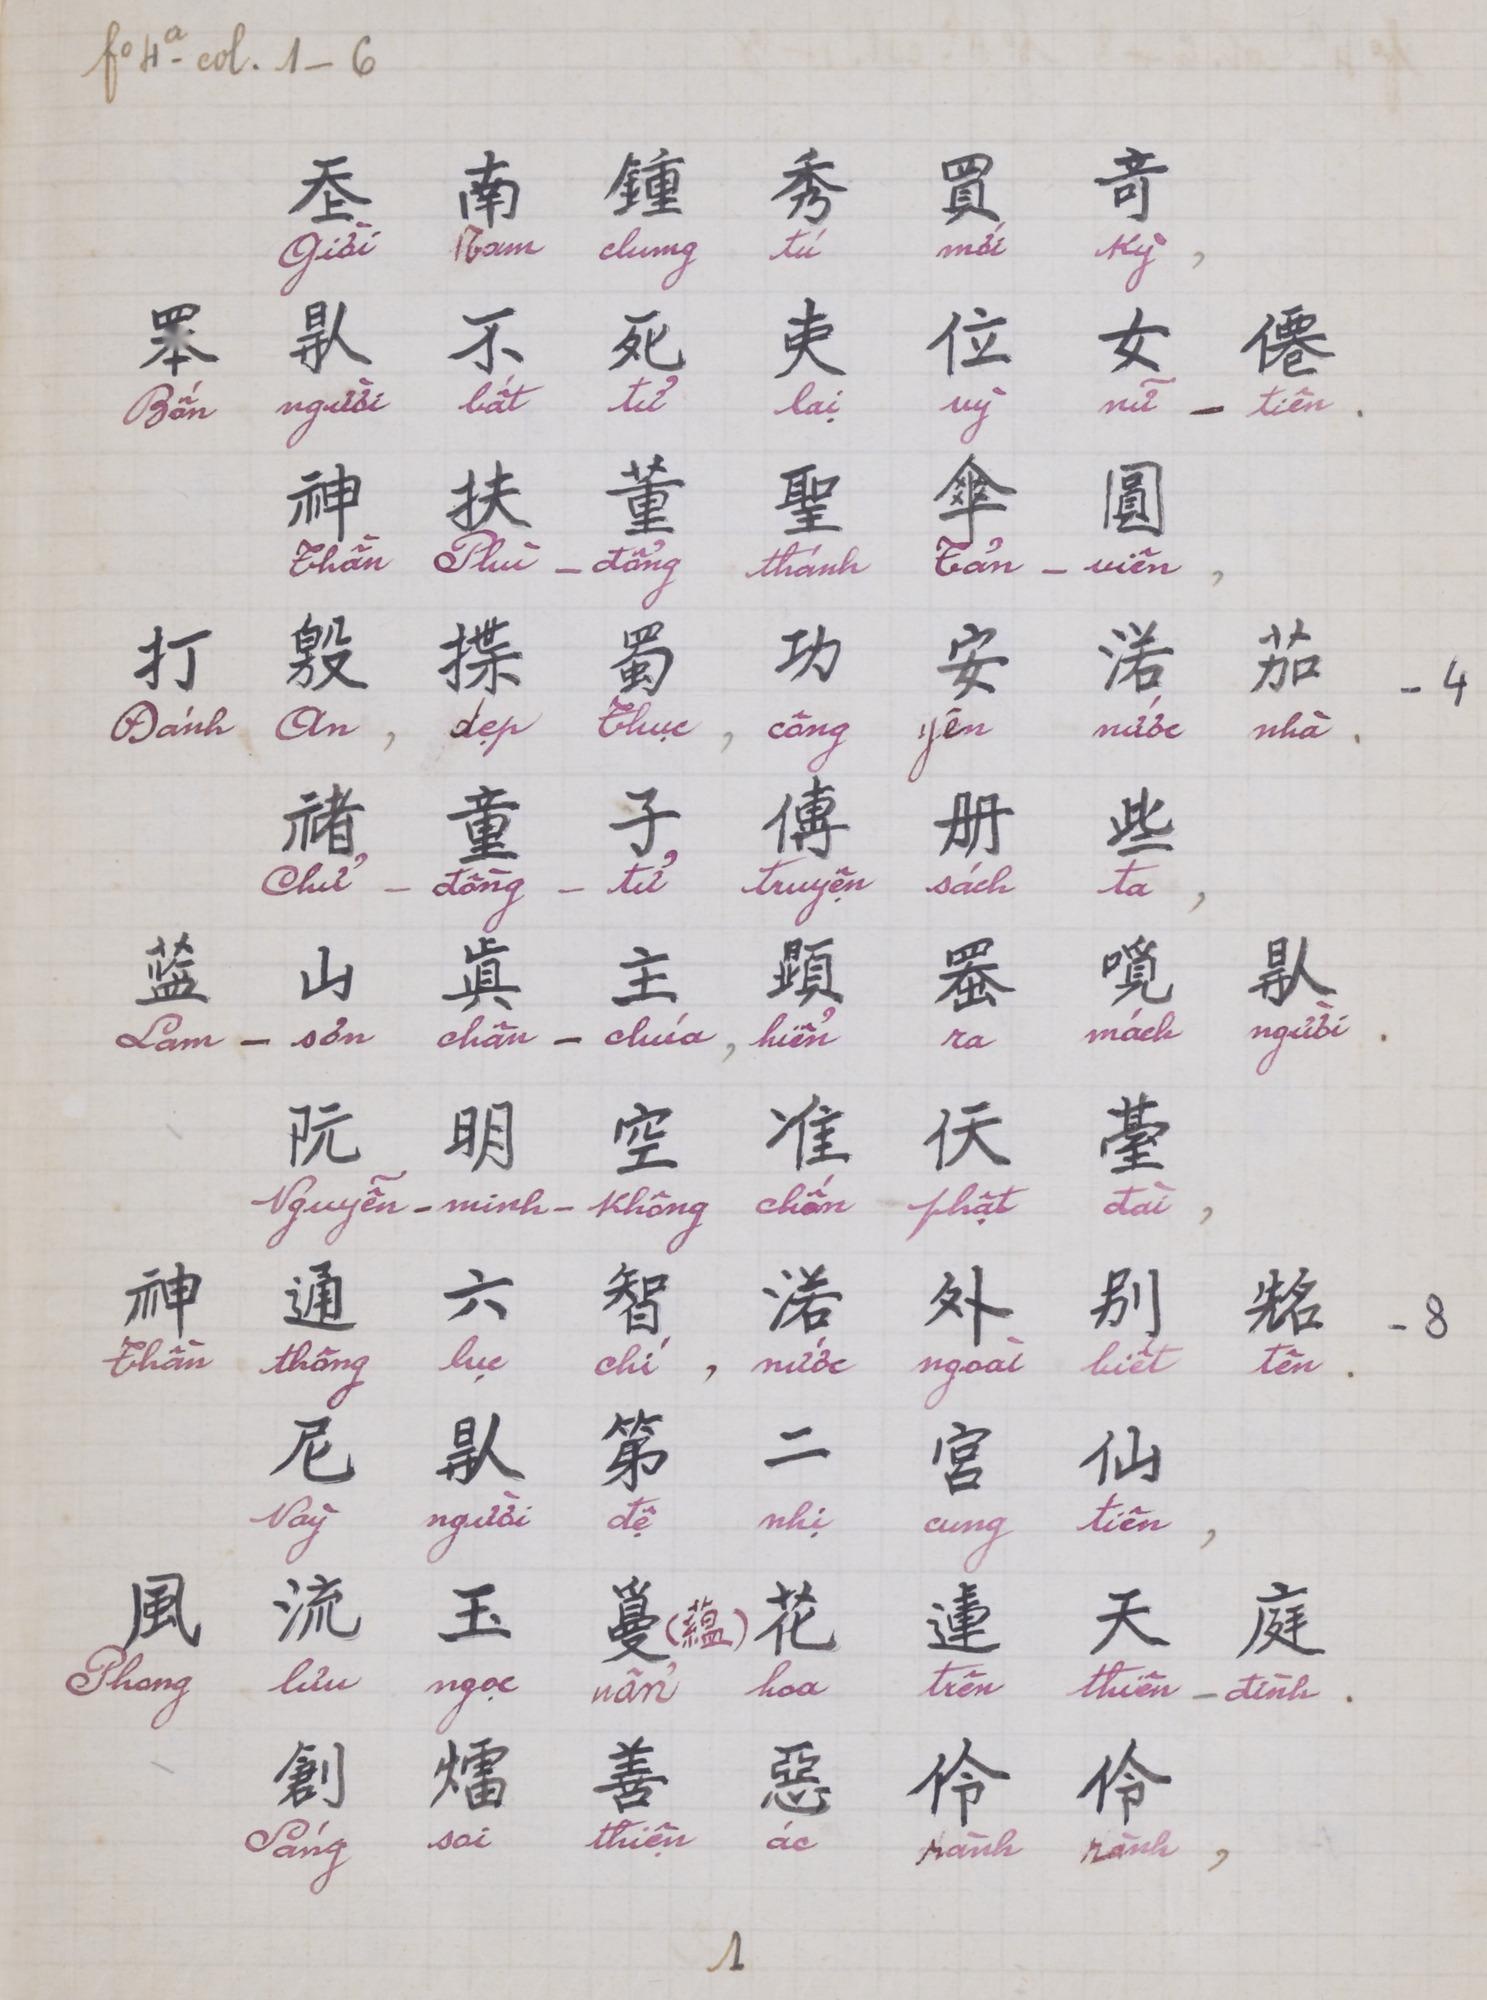 fº 4ª - col. 1 - 6
𡗶 南 鍾 秀 買 奇
Giời Nam chung tú mới kỳ,
𦊚 𠊛 不 死 吏 位 女 僊
Bốn người bất tử lại vỳ nữ - tiên.
神 扶 董 聖 傘 圓
Thần Phù - đổng thánh Tản - viên,
打 殷 揲 蜀 功 安 渃 茹 - 4
Đánh Ân, dẹp Thục, công yên nước nhà.
褚 童 子 傳 册 些
Chử - đồng - tử truyện sách ta,
藍 山 眞 主 顕 𦋦 𠶚 𠊛
Lam - sơn chân - chúa, hiển ra mách người.
阮 明 空 准 㐌 臺
Nguyễn - minh - không chốn phật đài,
神 通 六 智 渃 外 别 𠸛 - 8
Thần thông lục chí, nước ngoài biết tên.
尼 𠊛 第 二 宮 仙
Này người đệ nhị cung tiên,
風 流 玉 (蘊) 花 蓮 天 庭
Phong lưu ngọc uẩn hoa trên thiên - đình.
創 㷟 善 惡 伶 伶
Sáng soi thiện ác rành rành,
1